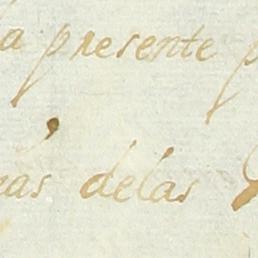 la presente p
nas delas